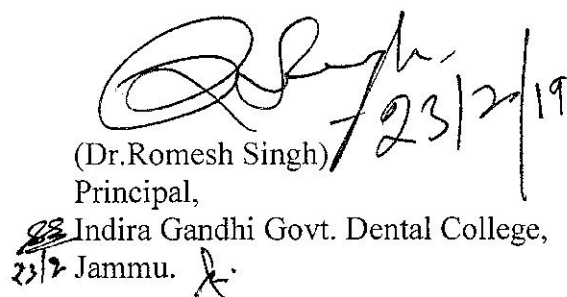 23/2/19
(Dr.Romesh Singh)
Principal,
Indira Gandhi Govt. Dental College,
23/2 Jammu.